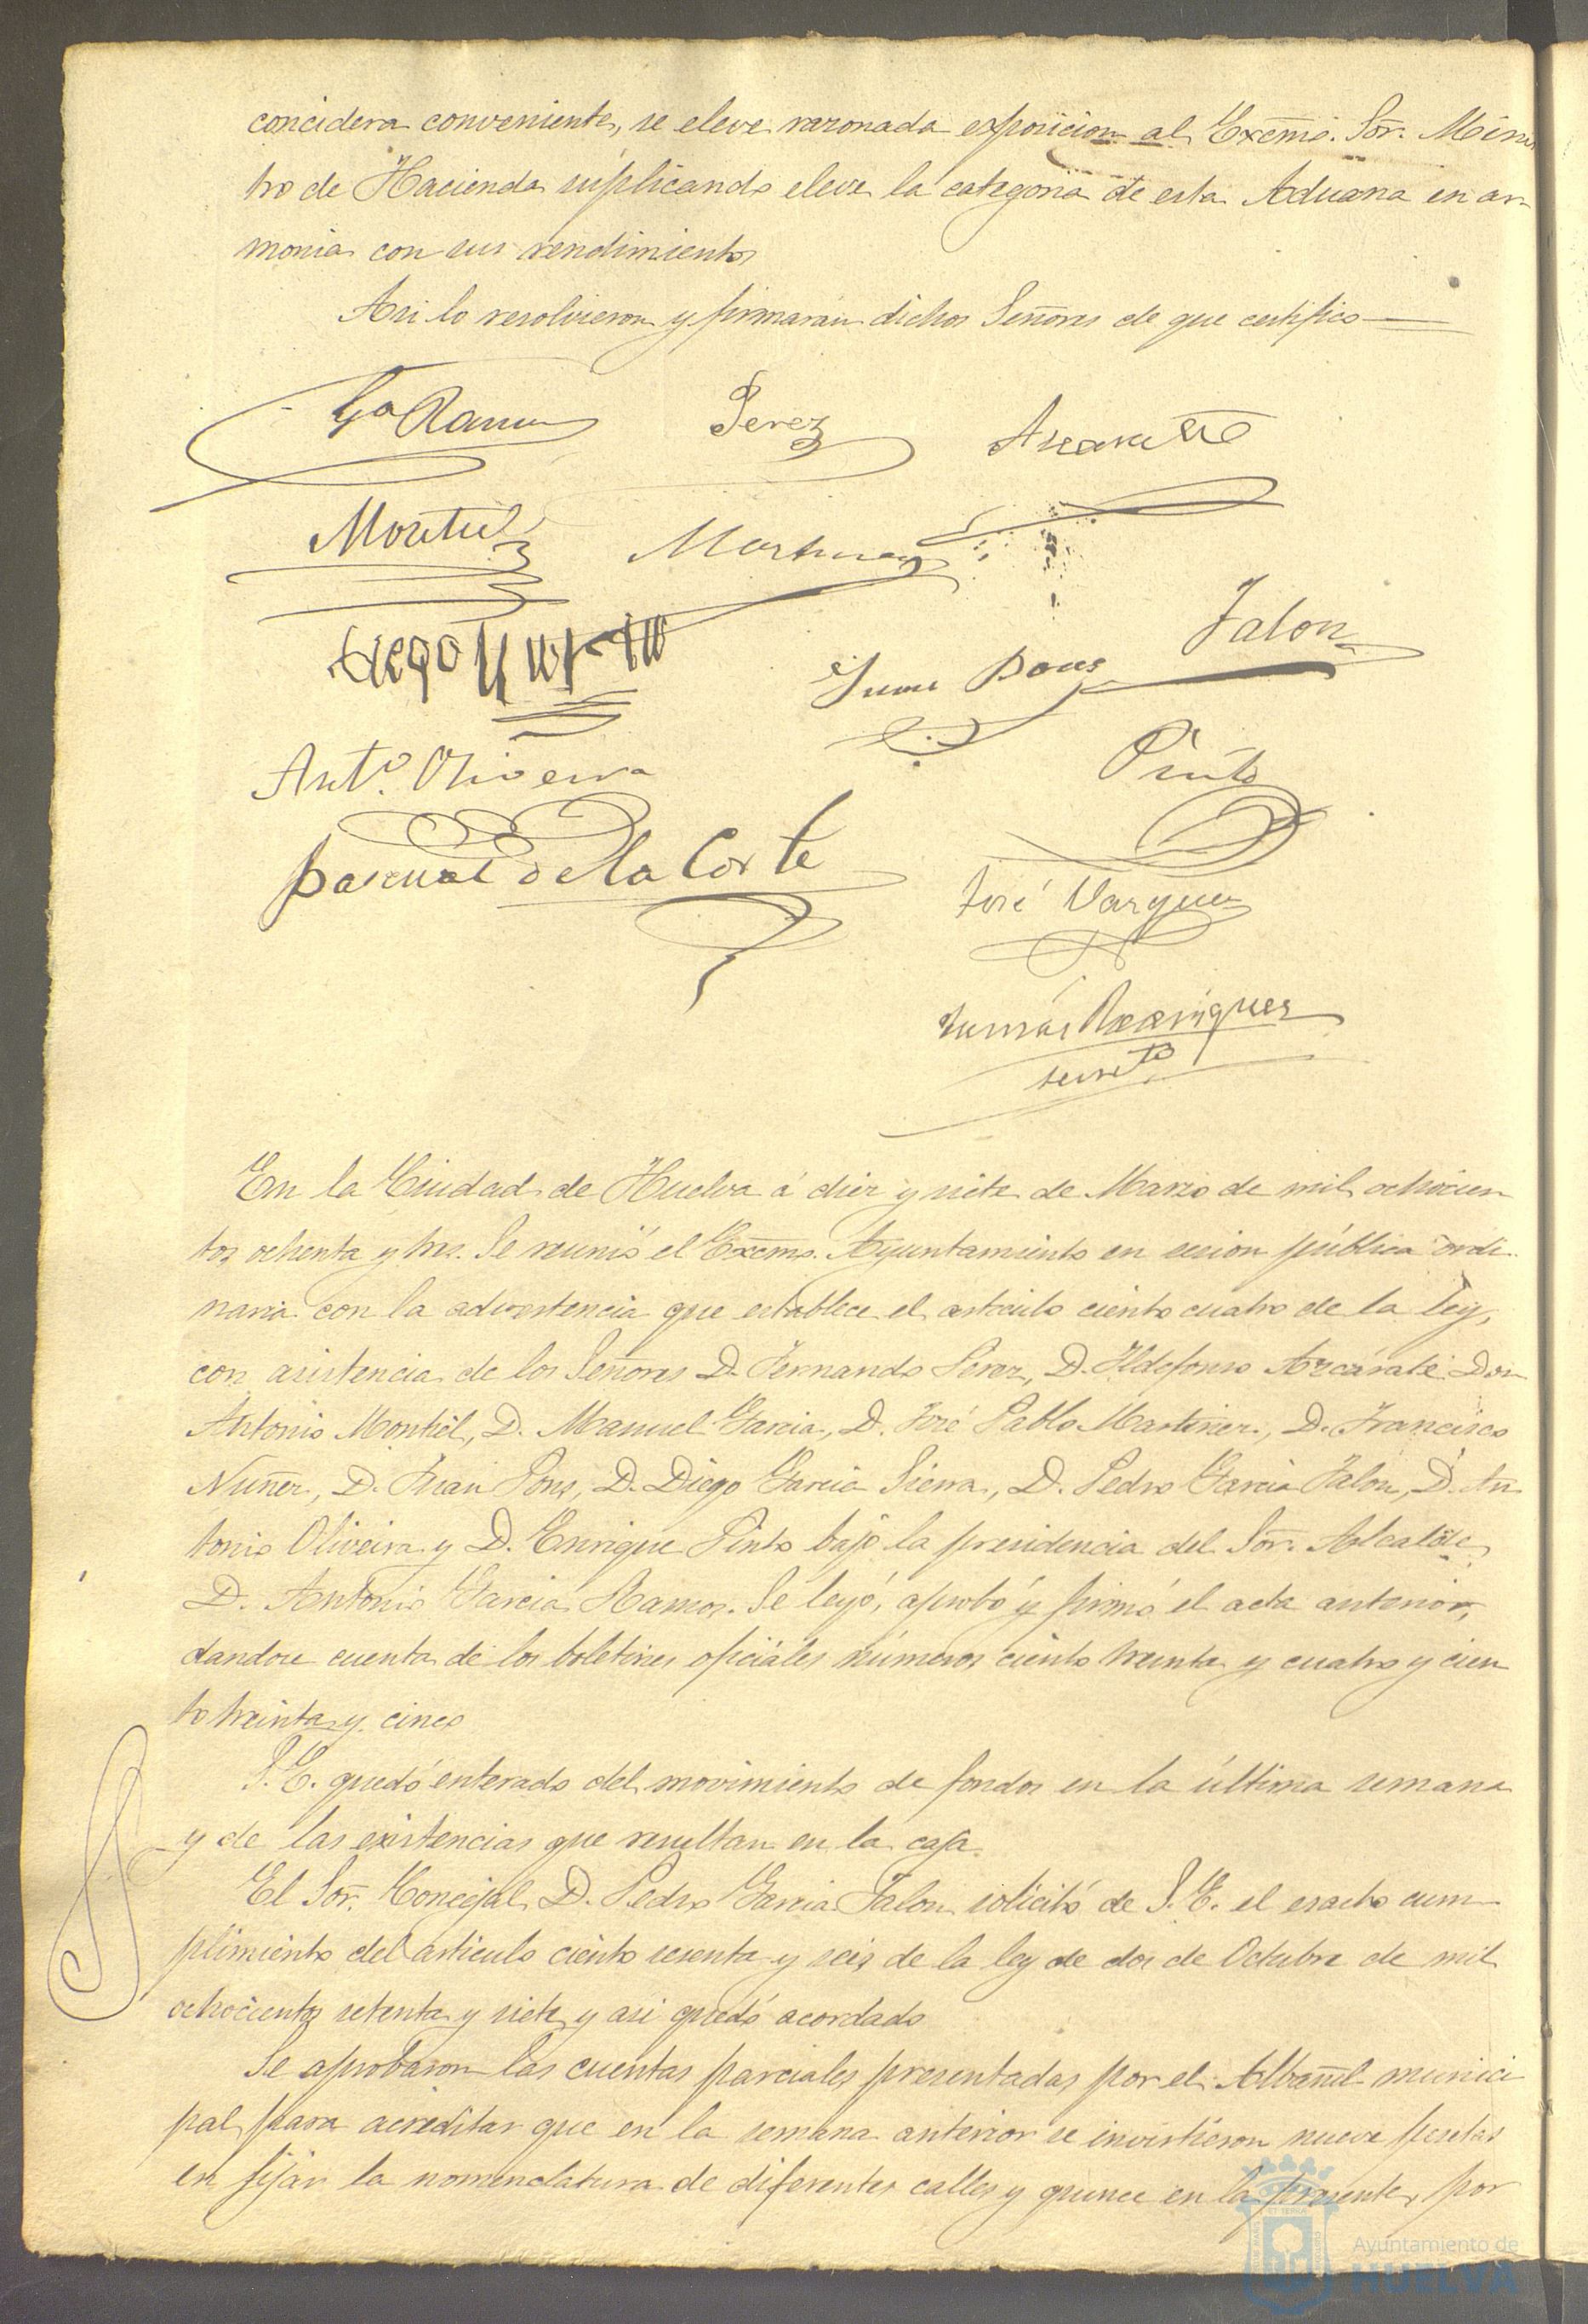 concidera conveniente, se eleve razonada exposicion al Excmo. Sor. Minis
tro de Hacienda suplicando eleve la categoria de esta Aduana en ar-
monia con sus rendimientos
Asi lo resolvieron y firmaran dichos Señores de que certifico
Ga Ramos
Perez
Azcarate
Montiel
Martinez
Diego
Jalon
Juan Pons
Anto. Oliveira
Pinto
Pascual de la Corte
José Vazquez
Tomás Rodriguez
Secreto
En la Ciudad de Huelva á diez y siete de Marzo de mil ochocien
tos ochenta y tres. Se reunió el Excmo. Ayuntamiento en secion pública ordi-
naria con la advertencia que establece el articulo ciento cuatro de la ley,
con asistencia de los Señores D. Fernando Perez, D. Ildefonso Azcárate Don
Antonio Montiel, D. Manuel Garcia, D. José Pablo Martinez, D. Francisco
Nuñez, D. Juan Pons, D. Diego Garcia Sierra, D. Pedro Garcia Jalon, D. An
tonio Oliveira y D. Enrique Pinto bajo la presidencia del Sor. Alcalde
D. Antonio Garcia Ramos. Se leyó, aprobó y firmó el acta anterior,
dandose cuenta de los boletines oficiales números ciento treinta y cuatro y cien
to treinta y cinco
S. E. quedó enterado del movimiento de fondos en la última semana
y de las existencias que resultan en la caja
El Sor. Concejal D. Pedro Garcia Jalon solicitó de S. E. el esacto cum-
plimiento del articulo ciento sesenta y seis de la ley de dos de Octubre de mil
ochocientos setenta y siete y asi quedó acordado
Se aprobaron las cuentas parciales presentadas por el Albañil munici
pal para acreditar que en la semana anterior se invirtieron nueve pesetas
en fijar la nomenclatura de diferentes calles y quince en la presente, por
Ayuntamiento de
HUELVA